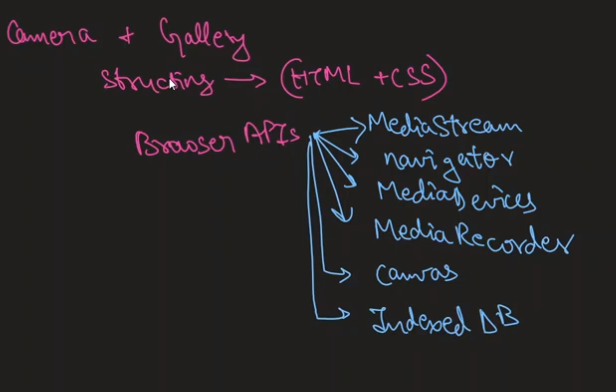 Camera + Gallery
structing → (HTML + CSS)
Browser APIs
MediaStream
navigator
MediaDevices
MediaRecorder
canvas
Indexed DB